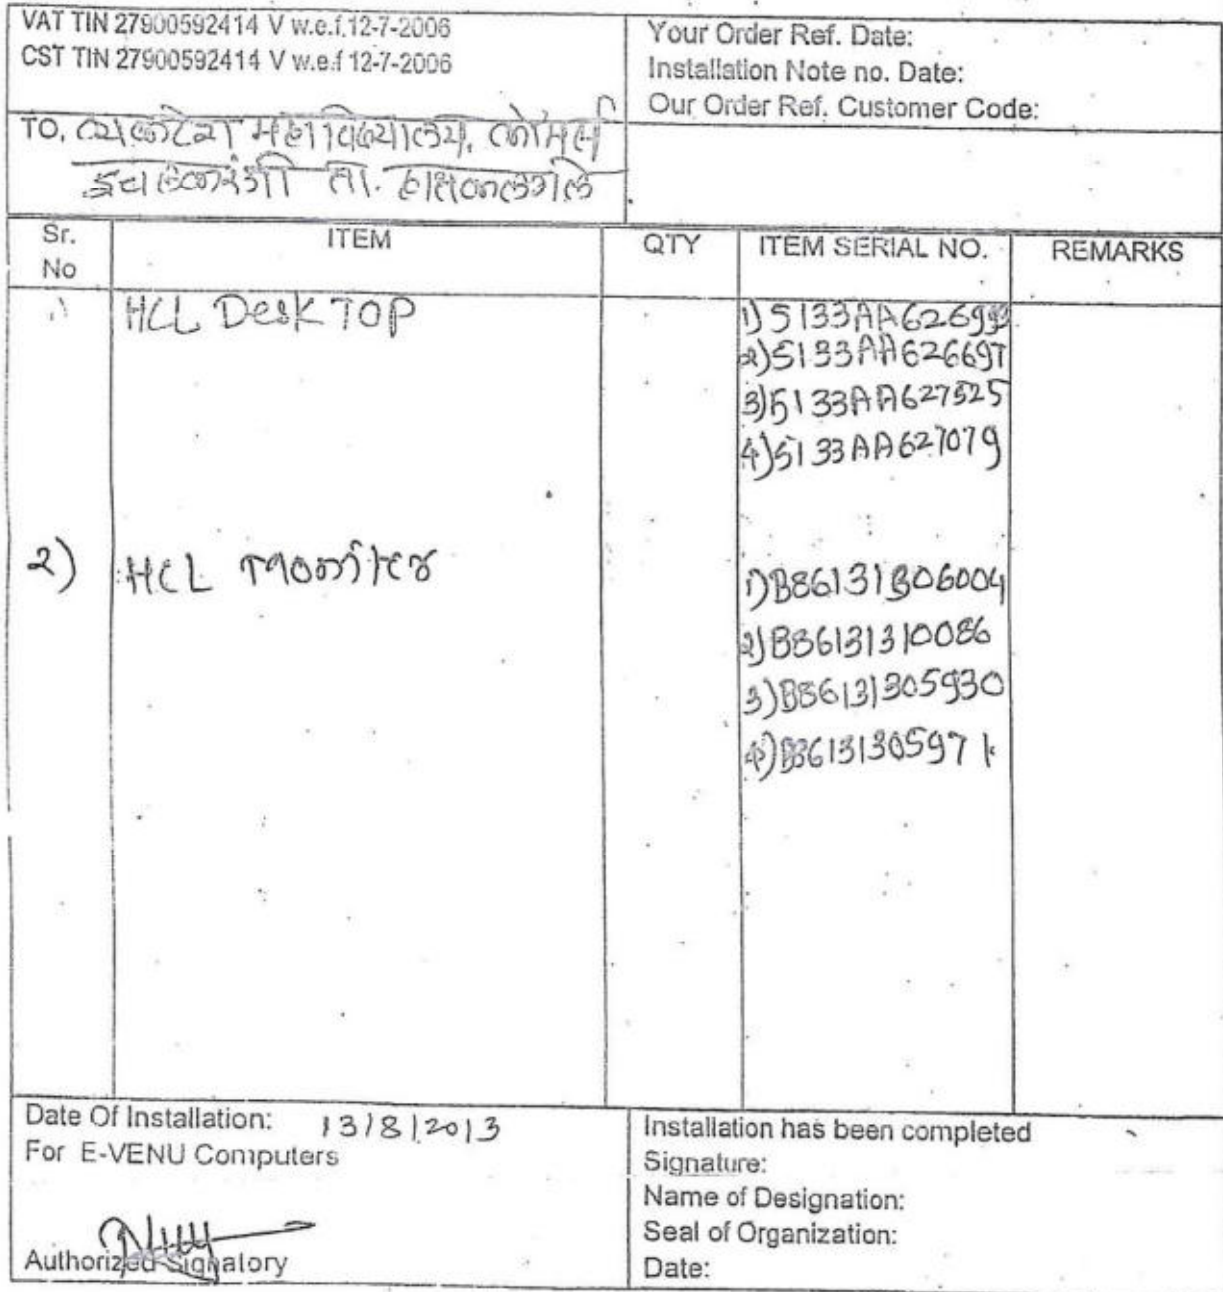 VAT TIN 27900592414 V w.e.f.12-7-2006
CST TIN 27900592414 V w.e.f 12-7-2006
Your Order Ref. Date:
Installation Note no. Date:
Our Order Ref. Customer Code:
TO,
ता.
Sr. No ITEM QTY ITEM SERIAL NO. REMARKS
1) HCL DeskTOP 1) 5133AA626993
2) 5133AA626697
3) 5133AA627525
4) 5133AA627079
2) HCL Moniter 1) B86131306004
2) B86131310086
3) B86131305930
4) B86131305971
Date Of Installation: 13/8/2013
For E-VENU Computers
Authorized Signatory
Installation has been completed
Signature:
Name of Designation:
Seal of Organization:
Date: